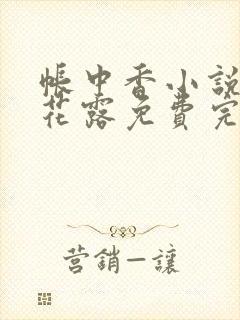 帳中香小說
花露免費完
营銷—讓